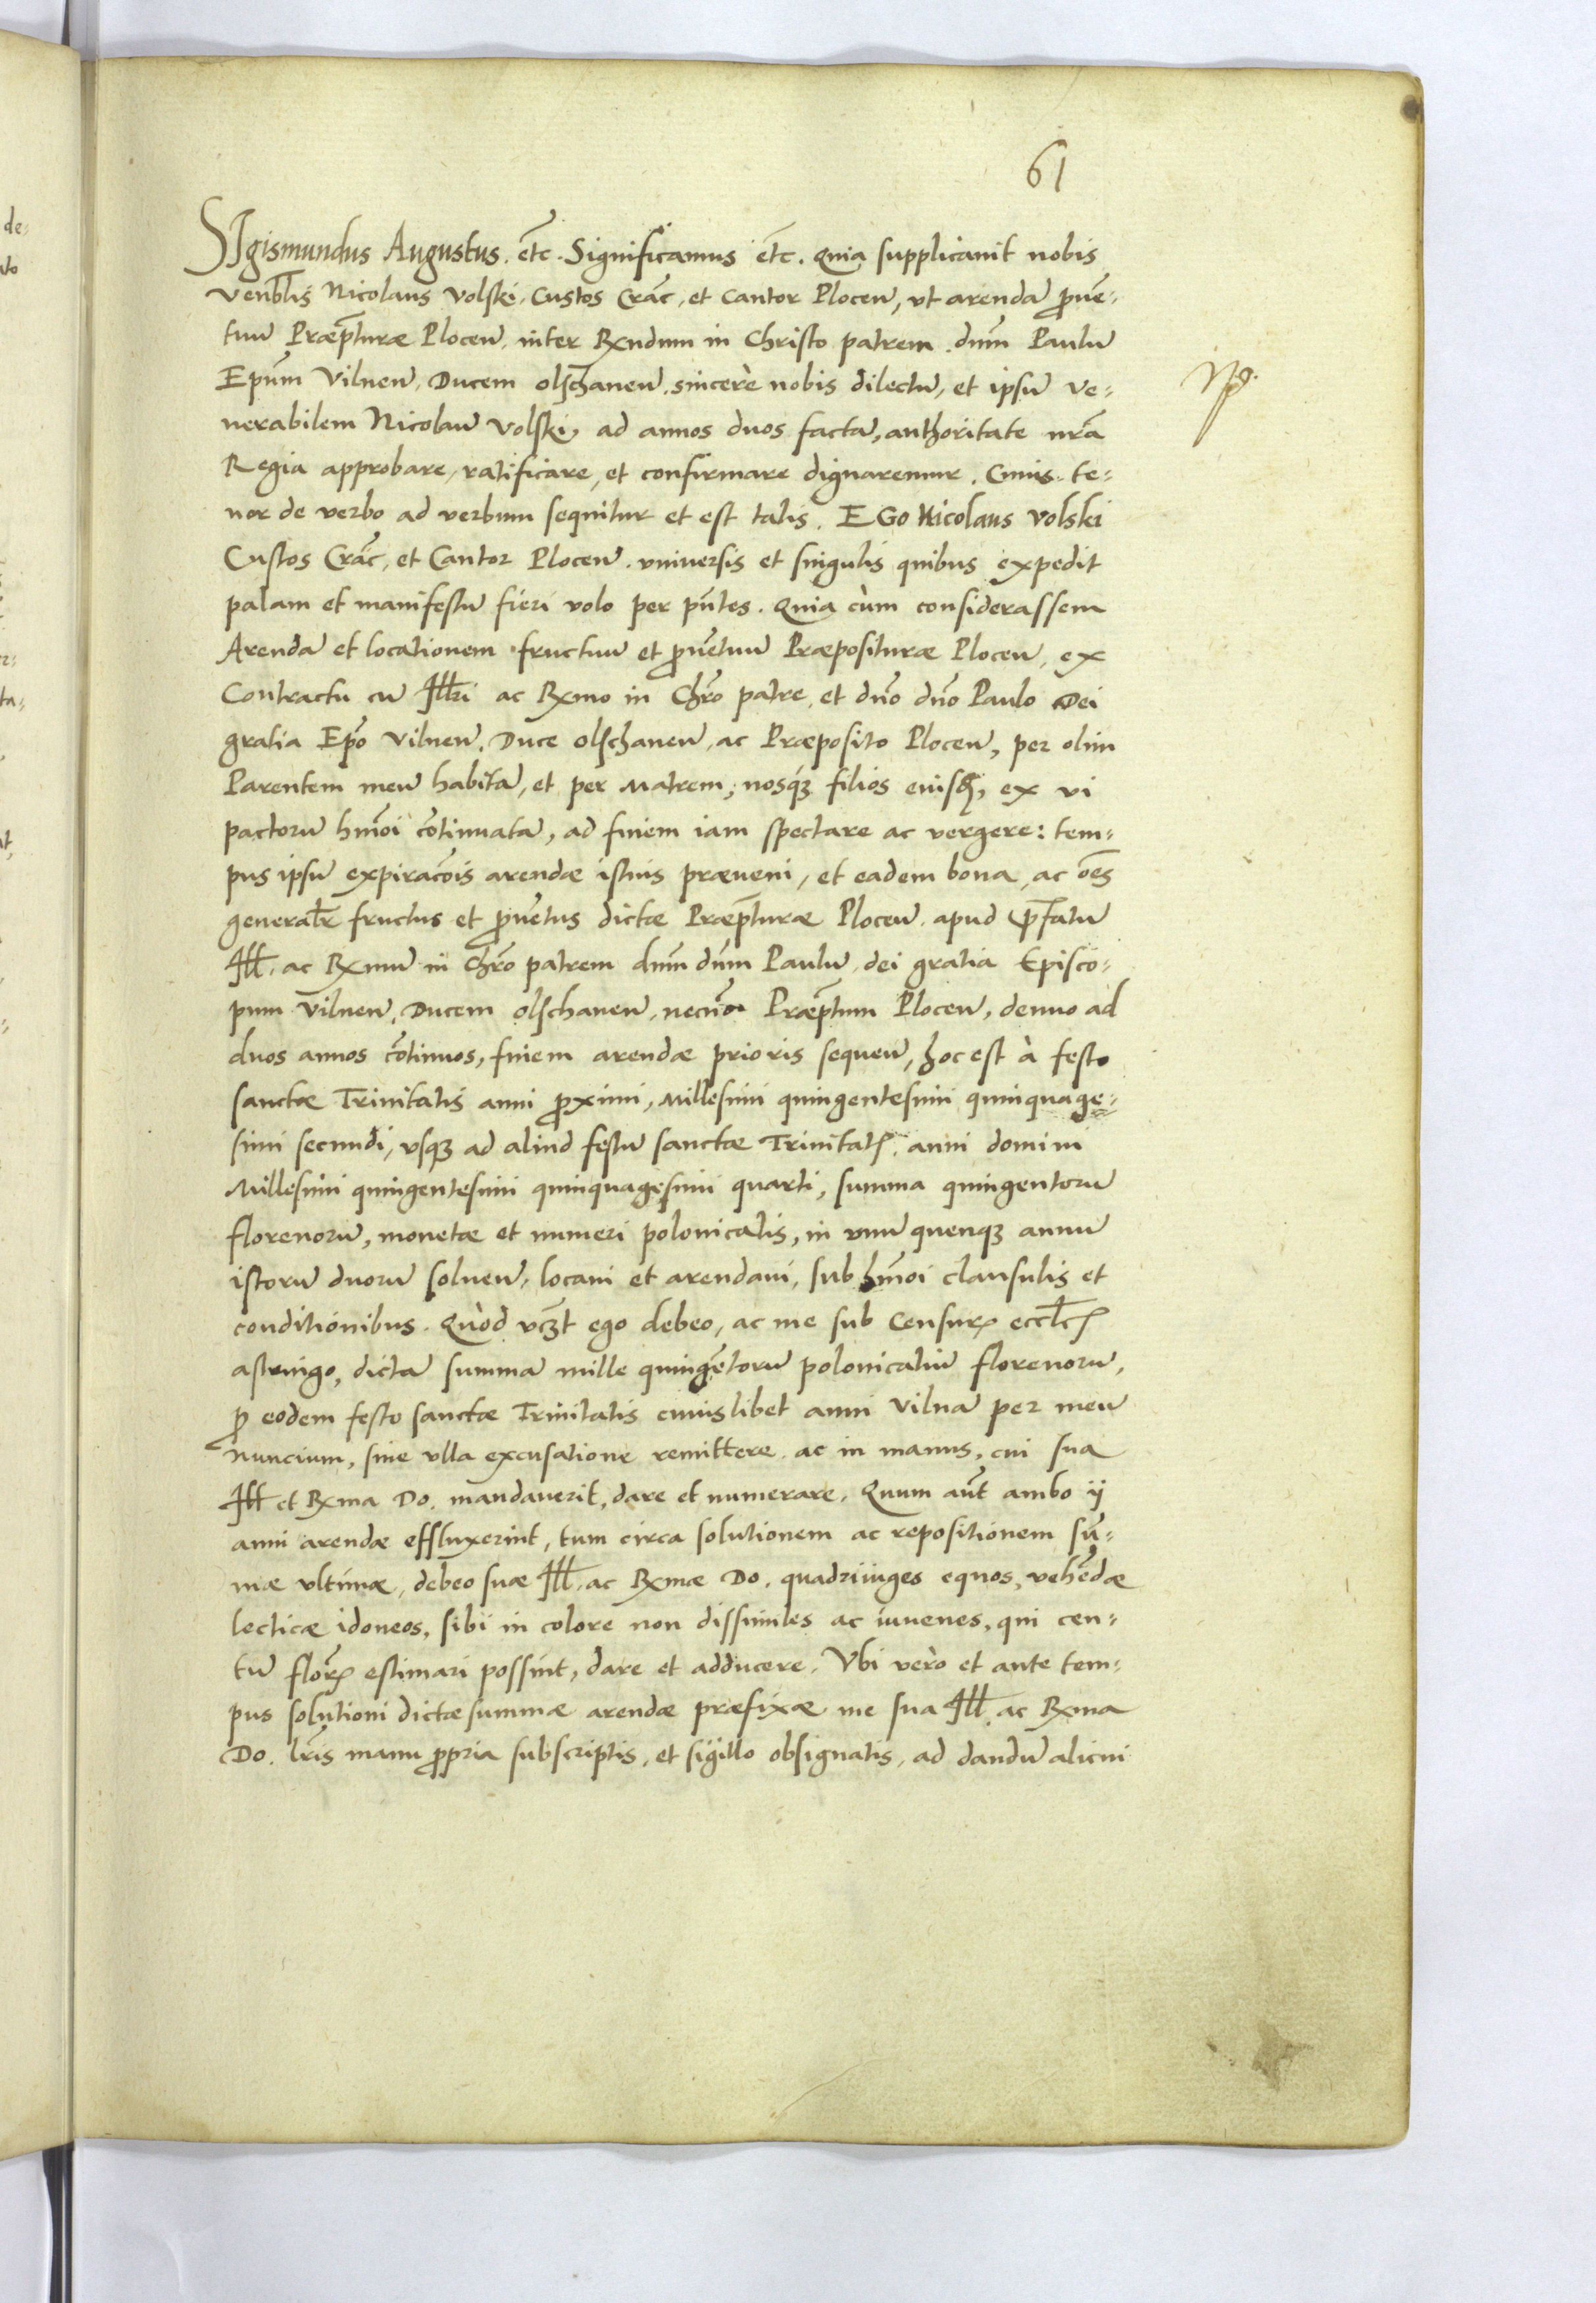 61
SIgismundus Augustus. etc. Significamus etc. Quia supplicauit nobis
Venblis Nicolaus Volski, Custos Crac, et Cantor Plocen̄, vt arendā prouē=
tuū Præpturæ Plocen̄, inter Rxndum in Christo patrem dnm̄ Paulū
Epum̄ Vilnen̄, Ducem olschanen̄, sincerè nobis dilectū, et ipsū Ve=
nerabilem Nicolaū Volski, ad annos duos factā, authoritate nrā
Regia approbare, ratificare, et confirmare dignaremur. Cuius te=
nor de verbo ad verbum sequitur et est talis. EGo Nicolaus Volski
Custos Crac̄, et Cantor Plocen̄. vniuersis et singulis quibus expedit
palam et manifestū fieri volo per pn̄tes. Quia cùm considerassem
Arendā et locationem fructuū et prouētuū Præposituræ Plocen̄, ex
Contractu cū Illri ac Rxmo in Chrō patre, et dnō dnō Paulo Dei
gratia Epō Vilnen̄. Duce olschanen̄, ac Præposito Plocen̄, per olim
Parentem meū habitā, et per Matrem, nosq́3 filios eiusq, ex vi
pactorū hmōi cōtinuatā, ad finem iam spectare ac vergere: tem=
pus ipsū expiracōis arendæ istius præueni, et eadem bona, ac oēs
generalr̄ fructus et prouētus dictæ Præpturæ Plocen̄. apud p̄fatū
Ill. ac Rxmū in Chrō patrem dnm̄ dnm̄ Paulū, dei gratia Episco=
pum Vilnen̄, Ducem olschanen̄, necnō Præptum Plocen̄, denuo ad
duos annos cōtinuos, finem arendæ prioris sequen̄, hoc est à festo
sanctæ Trinitatis anni proximi, Millesimi quingentesimi quinquage=
simi secundi, vsq3 ad aliud festū sanctæ Trinitatꝭ, anni domini
Millesimi quingentesimi quinquagesimi quarti, summa quingentorū
florenorū, monetæ et numeri polonicalis, in vnū quenq3 annū
istorū duorū soluen̄, locaui et arendaui, sub hmōi clausulis et
conditionibus. Quòd vcz̄t ego debeo, ac me sub Censurꝭ ecclcꝭ
astringo, dictā summā mille quingētorū polonicaliū florenorū,
pro eodem festo sanctæ Trinitatis cuiuslibet anni Vilnā per meū
nuncium, sine vlla excusatione remittere, ac in manus, cui sua
Ill et Rxma Do. mandauerit, dare et numerare. Quum aūt ambo ij
anni arendæ effluxerint, tum circa solutionem ac repositionem sum̄=
mæ vltimæ, debeo suæ Ill. ac Rxmæ Do. quadriiuges equos, vehēdæ
lecticæ idoneos, sibi in colore non dissimiles ac iuuenes, qui cen=
tū florꝭ estimari possint, dare et adducere. Vbi verò et ante tem=
pus solutioni dictæ summæ arendæ præfixæ me sua Ill. ac Rxma
Do. lr̄is manu propria subscriptis, et sigillo obsignatis, ad dandū alicui